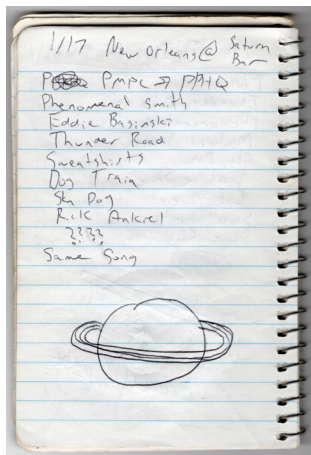 1/17 New Orleans @ Saturn Bar
PMPC → PP+Q
Phenomenal Smith
Eddie Basinski
Thunder Road
Sweatshirts
Dog Train
Sky Dog
Rick Ankiel
????
Same Song